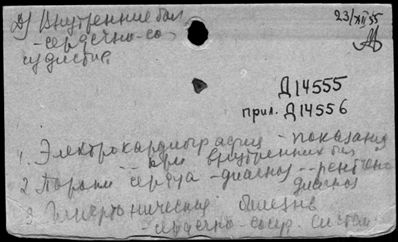 Д) Внутренние бол
- сердечно-со
судистые
23/XII 55
Д14555
прил. Д14556
1. Электрокардиография - показания
при внутренних бол
2 Пороки сердца - диагноз - рентгено
диагноз
3 Гипертоническая болезнь
- сердечно-сосуд. систем.